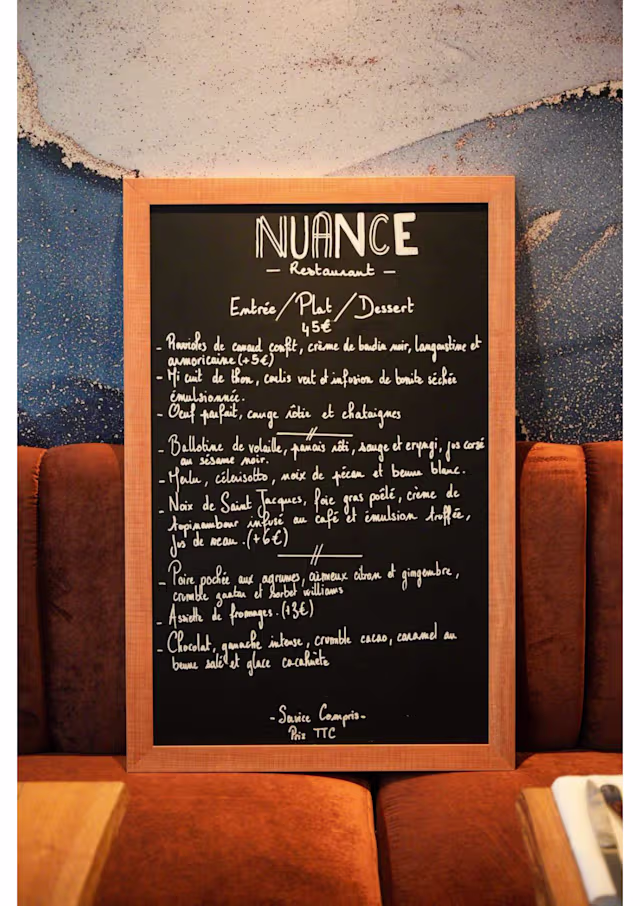 NUANCE
- Restaurant -
Entrée/Plat/Dessert
45€
- Ravioles de canard confit, crème de boudin noir, langoustine et
armoricaine (+5€)
- Mi cuit de thon, coulis vert et infusion de bonite séchée
émulsionnée.
- Oeuf parfait, courge rôtie et chataignes
- Ballotine de volaille, panais rôti, sauge et eryngi, jus corsé
au sésame noir.
- Merlu, célerisotto, noix de pécan et beurre blanc.
- Noix de Saint Jacques, foie gras poêlé, crème de
topinambour infusé au café et émulsion truffée,
jus de veau. (+6€)
- Poire pochée aux agrumes, crémeux citron et gingembre,
crumble et sorbet williams
- Assiette de fromages. (+3€)
- Chocolat, ganache intense, crumble cacao, caramel au
beurre salé et glace cacahuète
- Service Compris -
Prix TTC